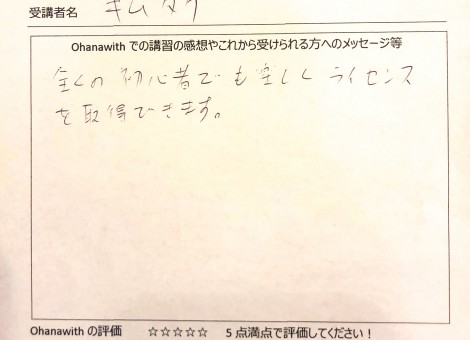 受講者名 キムタク
Ohanawith での講習の感想やこれから受けられる方へのメッセージ等
全くの初心者でも楽しくライセンス
を取得できます。
Ohanawith の評価 ☆☆☆☆☆ 5 点満点で評価してください！